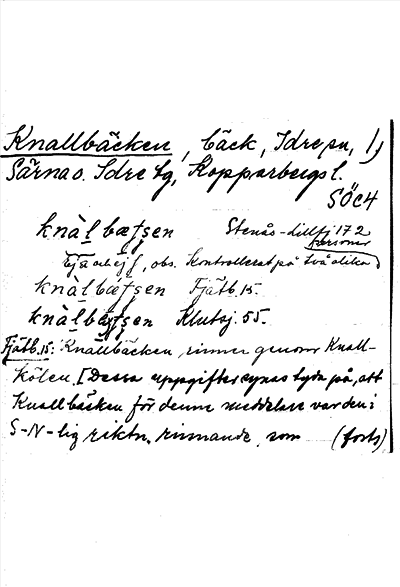 Knallbäcken, bäck, Idre sn, 1)
Särna o. Idre tg, Kopparbergs l.
SÖC4
knàl̥bæʃsen Stenås-Lillfj 172
personer
, obs. kontrollerat på två olika)
knàl̥bæʃsen Fjätb. 15.
knàl̥bæʃsen Klutsj. 55.
Fjätb. 15: Knallbäcken rinner genom Knall-
kölen. [Dessa uppgifter synas tyda på, att
Knallbäcken för denne meddelare var den i
S-N-lig riktn. rinnande, som (forts)